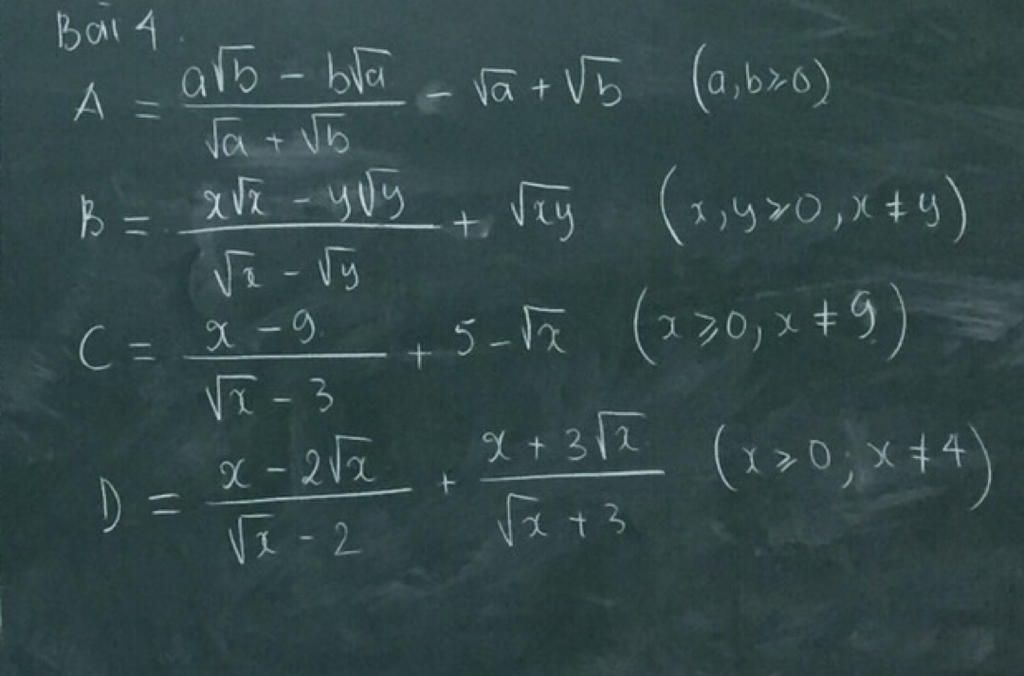 Bài 4.
A = \frac{a\sqrt{b} - b\sqrt{a}}{\sqrt{a} + \sqrt{b}} - \sqrt{a} + \sqrt{b} (a,b ⩾ 0)
B = \frac{x\sqrt{x} - y\sqrt{y}}{\sqrt{x} - \sqrt{y}} + \sqrt{xy} (x,y ⩾ 0, x ≠ y)
C = \frac{x - 9}{\sqrt{x} - 3} + 5 - \sqrt{x} (x ⩾ 0, x ≠ 9)
D = \frac{x - 2\sqrt{x}}{\sqrt{x} - 2} + \frac{x + 3\sqrt{x}}{\sqrt{x} + 3} (x ⩾ 0; x ≠ 4)